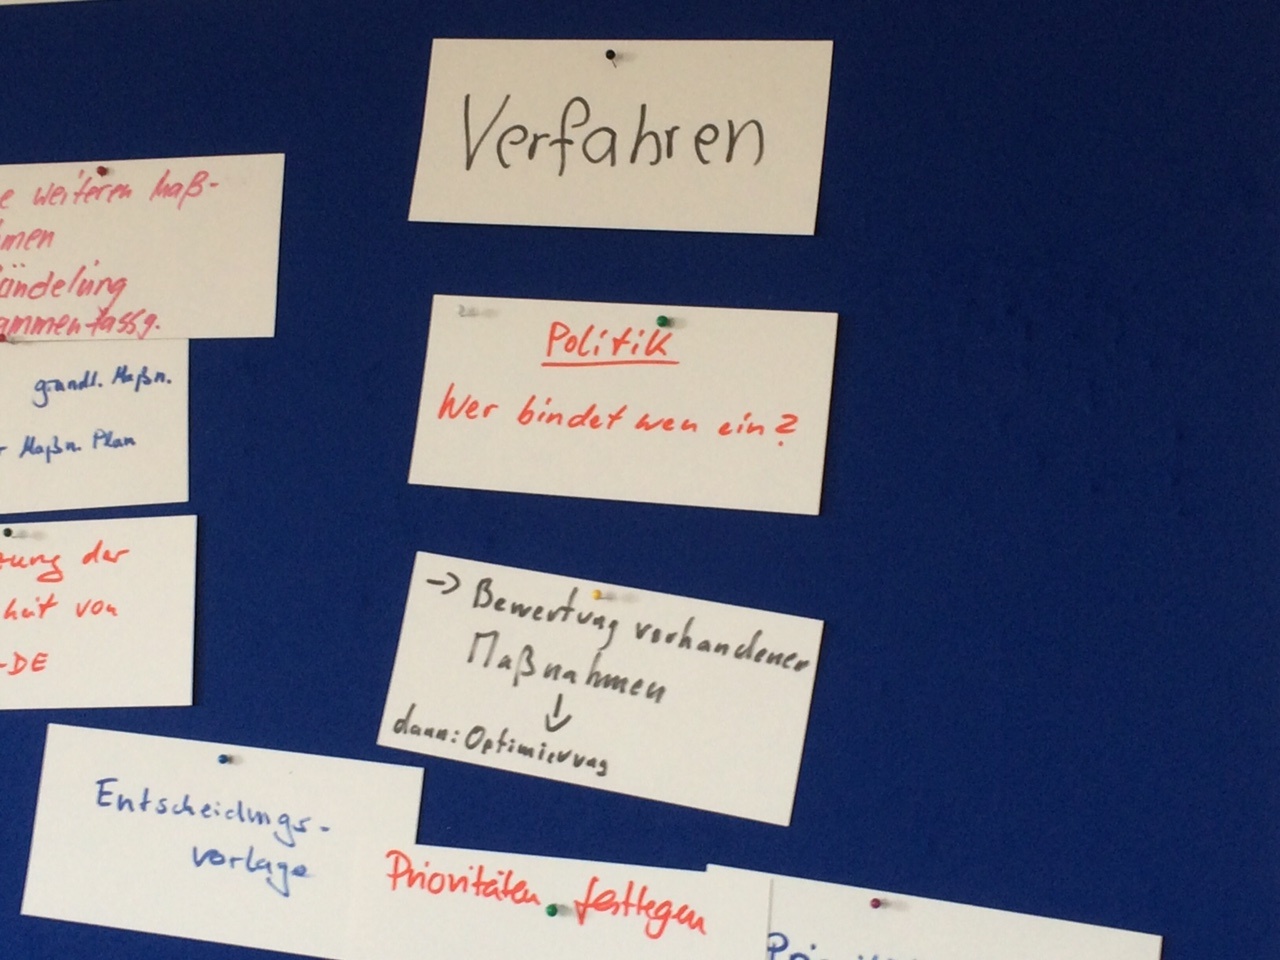 Verfahren
e weiteren Maß-
men
ündelung
ammenfassg.
grundl. Maßn.
Maßn. Plan
Politik
Wer bindet wen ein?
der
heit von
-DE
-> Bewertung vorhandener
Maßnahmen
↓
dann: Optimierung
Entscheidungs-
vorlage
Prioritäten festlegen